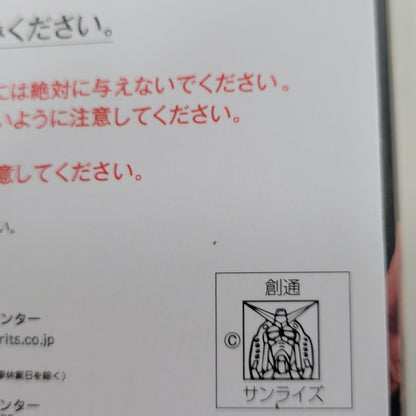 みください。
には絶対に与えないでください。
いように注意してください。
意してください。
い。
ンター
rits.co.jp
業休業日を除く)
ンター
創通
©
サンライズ